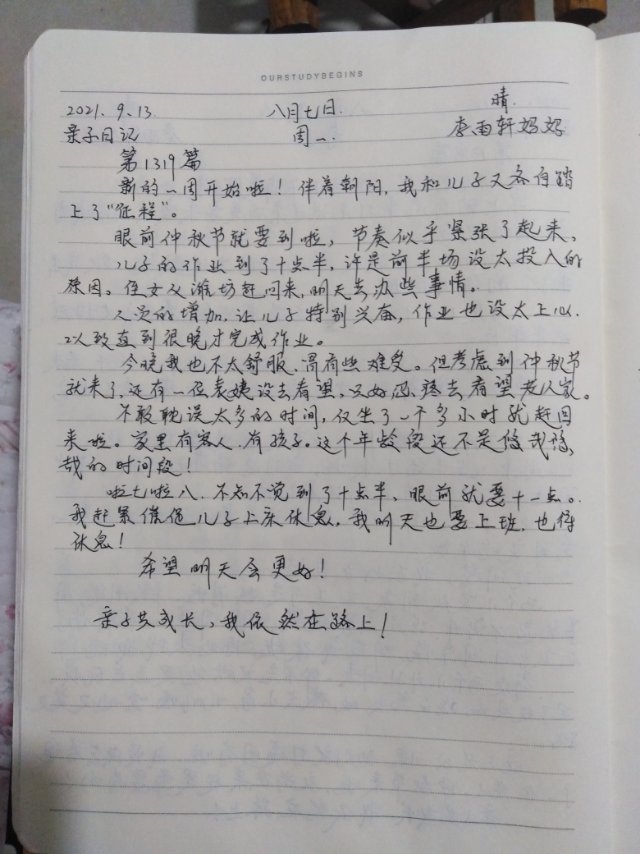 OURSTUDYBEGINS
2021.9.13 八月七日. 晴.
亲子日记 周一. 李雨轩妈妈
第1319篇
新的一周开始啦！伴着朝阳，我和儿子又各自踏
上了“征程”。
眼前仲秋节就要到啦，节奏似乎紧张了起来，
儿子的作业到了十点半，许是前半场没太投入的
原因。侄女从潍坊赶回来，明天去办些事情。
人员的增加，让儿子特别兴奋，作业也没太上心.
以致直到很晚才完成作业。
今晚我也不太舒服、胃有些难受。但考虑到仲秋节
就来了，还有一位表姨没去看望，又好 去看望老人家。
不敢耽误太多的时间，仅坐了一个多小时就赶回
来啦。家里有客人.有孩子。这个年龄段还不是优哉悠
哉的时间段！
啦七啦八.不知不觉到了十点半，眼前就要十一点。
我赶紧催促儿子上床休息。我明天也要上班.也得
休息！
希望明天会更好！
亲子共成长，我依然在路上！